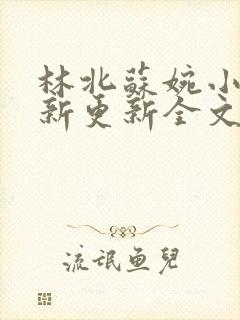 林北蘇婉小
新更新全文
流氓鱼兒